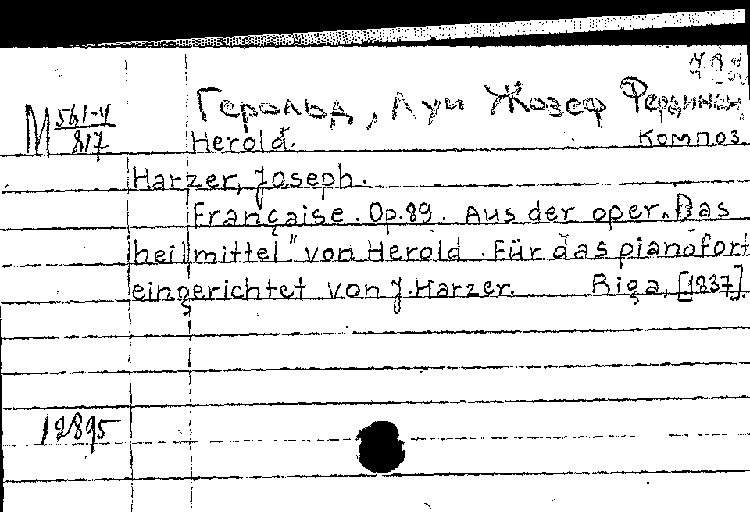 Герольд, Луи Жозеф Фердинан,
М 561-4
817
Herold. композ.
Harzer, Joseph.
Française. Op. 89. Aus der oper „Das
heilmittel" von Herold. Für das pianofort
eingerichtet von J. Harzer. Riga, [1837].
12895